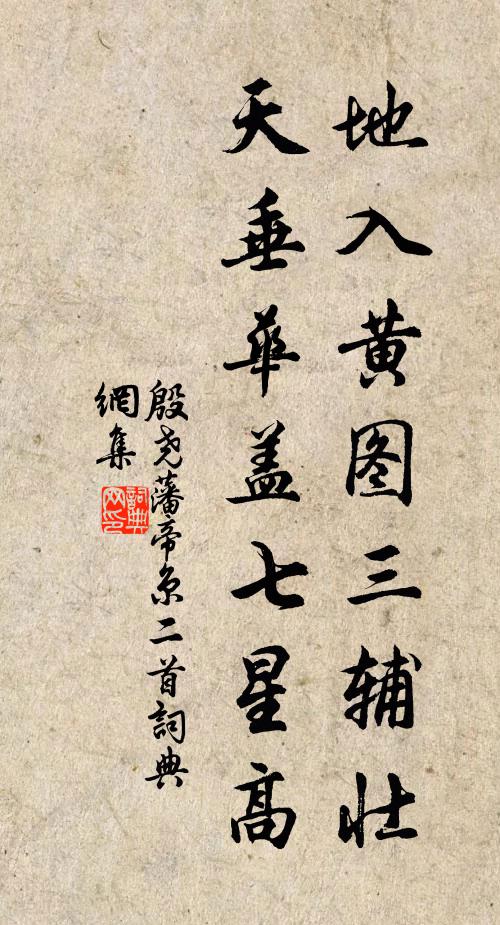 地入黄图三辅壮
天垂华盖七星高
殷尧藩帝京二首詞典
網集
詞典网印